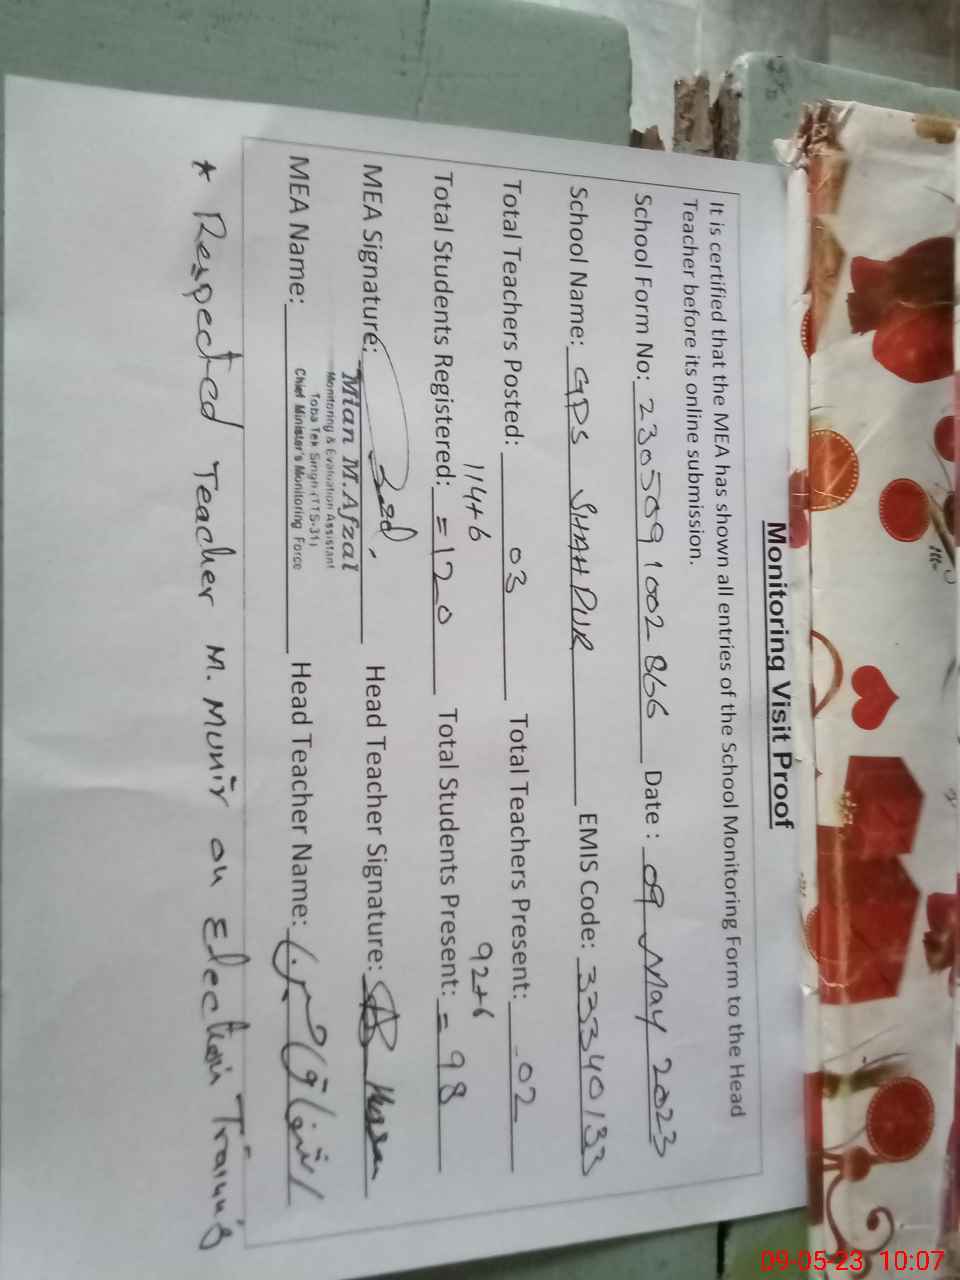 Monitoring Visit Proof
It is certified that the MEA has shown all entries of the School Monitoring Form to the Head
Teacher before its online submission.
School Form No: 2305091002866 Date : 09 May 2023
School Name: GPS SHAHPUR EMIS Code: 33340133
Total Teachers Posted: 03 Total Teachers Present: 02
114+6 92+6
Total Students Registered: =120 Total Students Present: = 98
MEA Signature: Head Teacher Signature:
Mian M.Afzal
Monitoring & Evaluation Assistant
Toba Tek Singh (TTS-31)
Chief Minister's Monitoring Force
MEA Name: Head Teacher Name:
* Respected Teacher M. Munir on Election Training
09-05-23 10:07